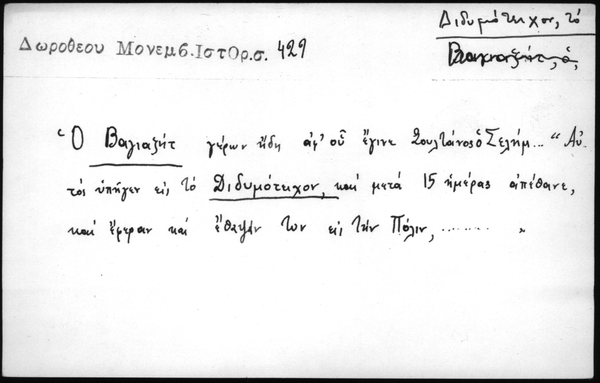 Διδυμότειχον, τό
Δωροθεου Μονεμβ. Ιστορ. σ. 429
Βαγιαζήτ, ὁ,
"Ὁ Βαγιαζήτ γέρων ἤδη ἀφ' οὗ ἔγινε Σουλτάνος ὁ Σελήμ... "Αὐ-
τός ὑπῆγεν εἰς τό Διδυμότειχον, καί μετά 15 ἡμέρας ἀπέθανε,
καί ἔφεραν καί ἔθαψάν τον εἰς τήν Πόλιν, ........ "